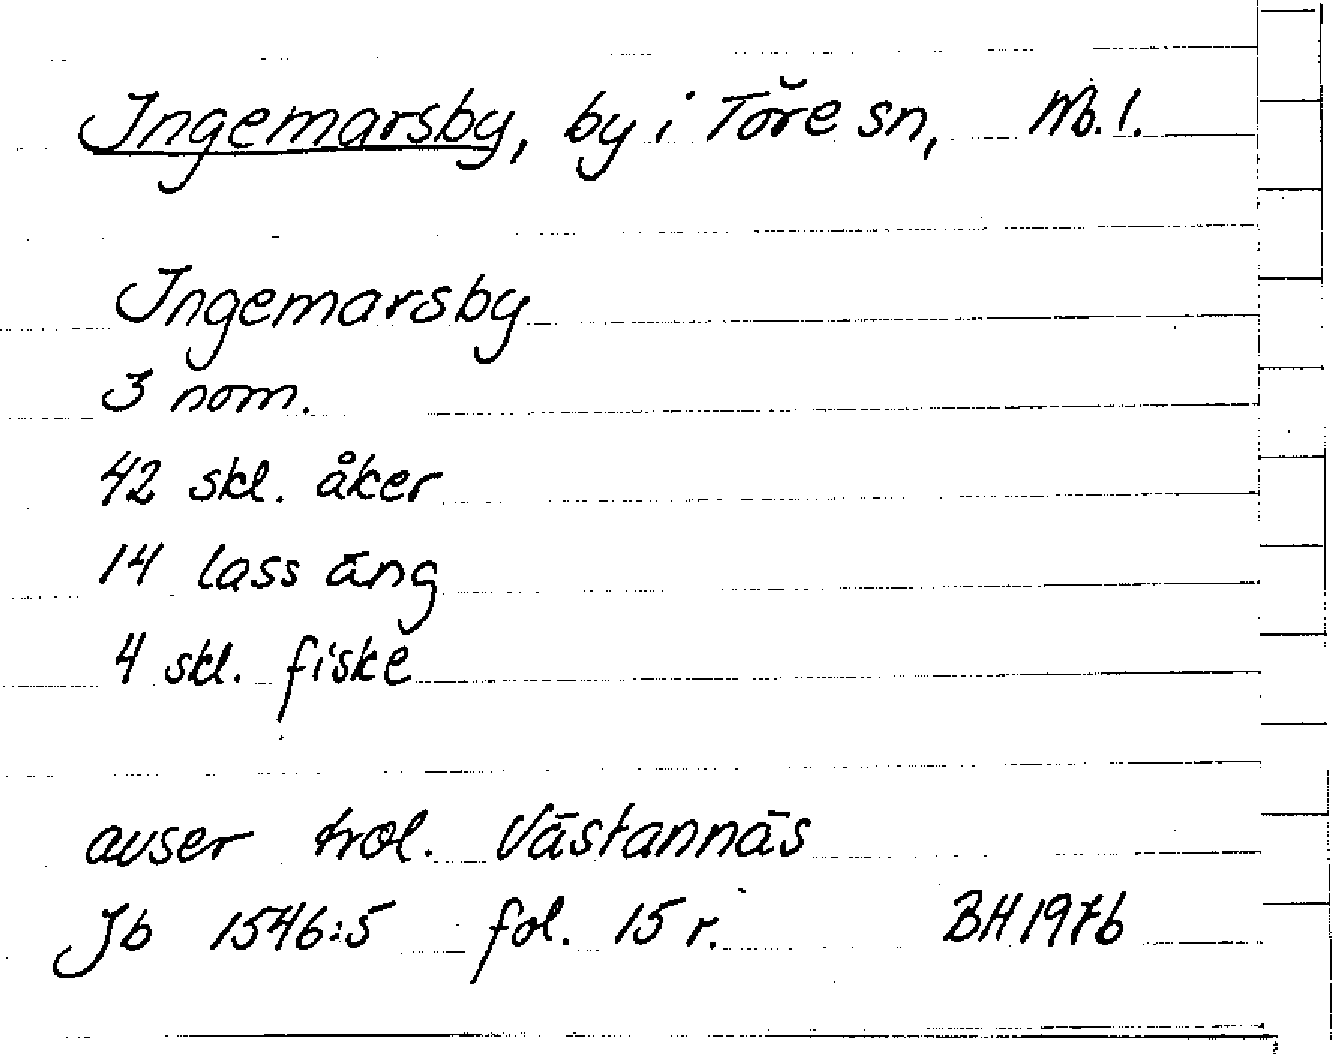 Ingemarsby, by i Töre sn, Nb. l.
Ingemarsby
3 nom.
42 skl. åker
14 lass äng
4 skl. fiske
avser trol. Västannäs
Jb 1546:5 fol. 15 r. BH 1976